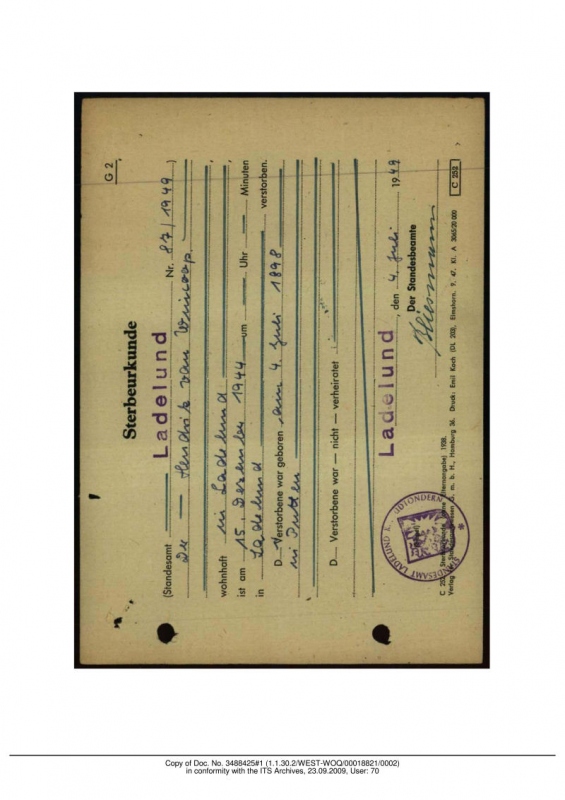 G 2
Sterbeurkunde
(Standesamt Ladelund Nr. 87/1949)
Der Hendrik van
wohnhaft in Ladelund
ist am 15. Dezember 1944 um — Uhr — Minuten
in Ladelund verstorben.
D— Verstorbene war geboren am 4. Juli 1898
in Putten
D— Verstorbene war — nicht — verheiratet
Ladelund, den 4. Juli 1949
Der Standesbeamte
STANDESAMT LADELUND SÜDTONDERN
C 252
Verlag
m. b. H., Hamburg 36. Druck: Emil Koch (GL 203), Elmshorn. 9. 47. Kl. A
Copy of Doc. No. 3488425#1 (1.1.30.2/WEST-WOQ/00018821/0002)
in conformity with the ITS Archives, 23.09.2009, User: 70